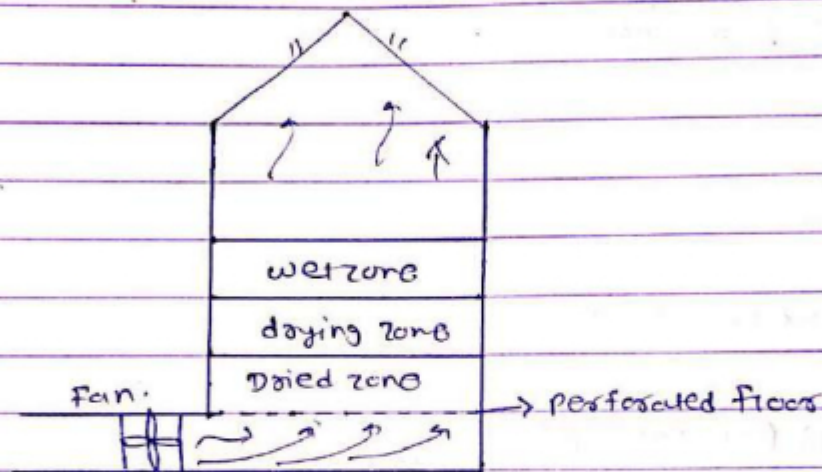 wet zone
drying zone
Dried zone
Fan.
perforated floor